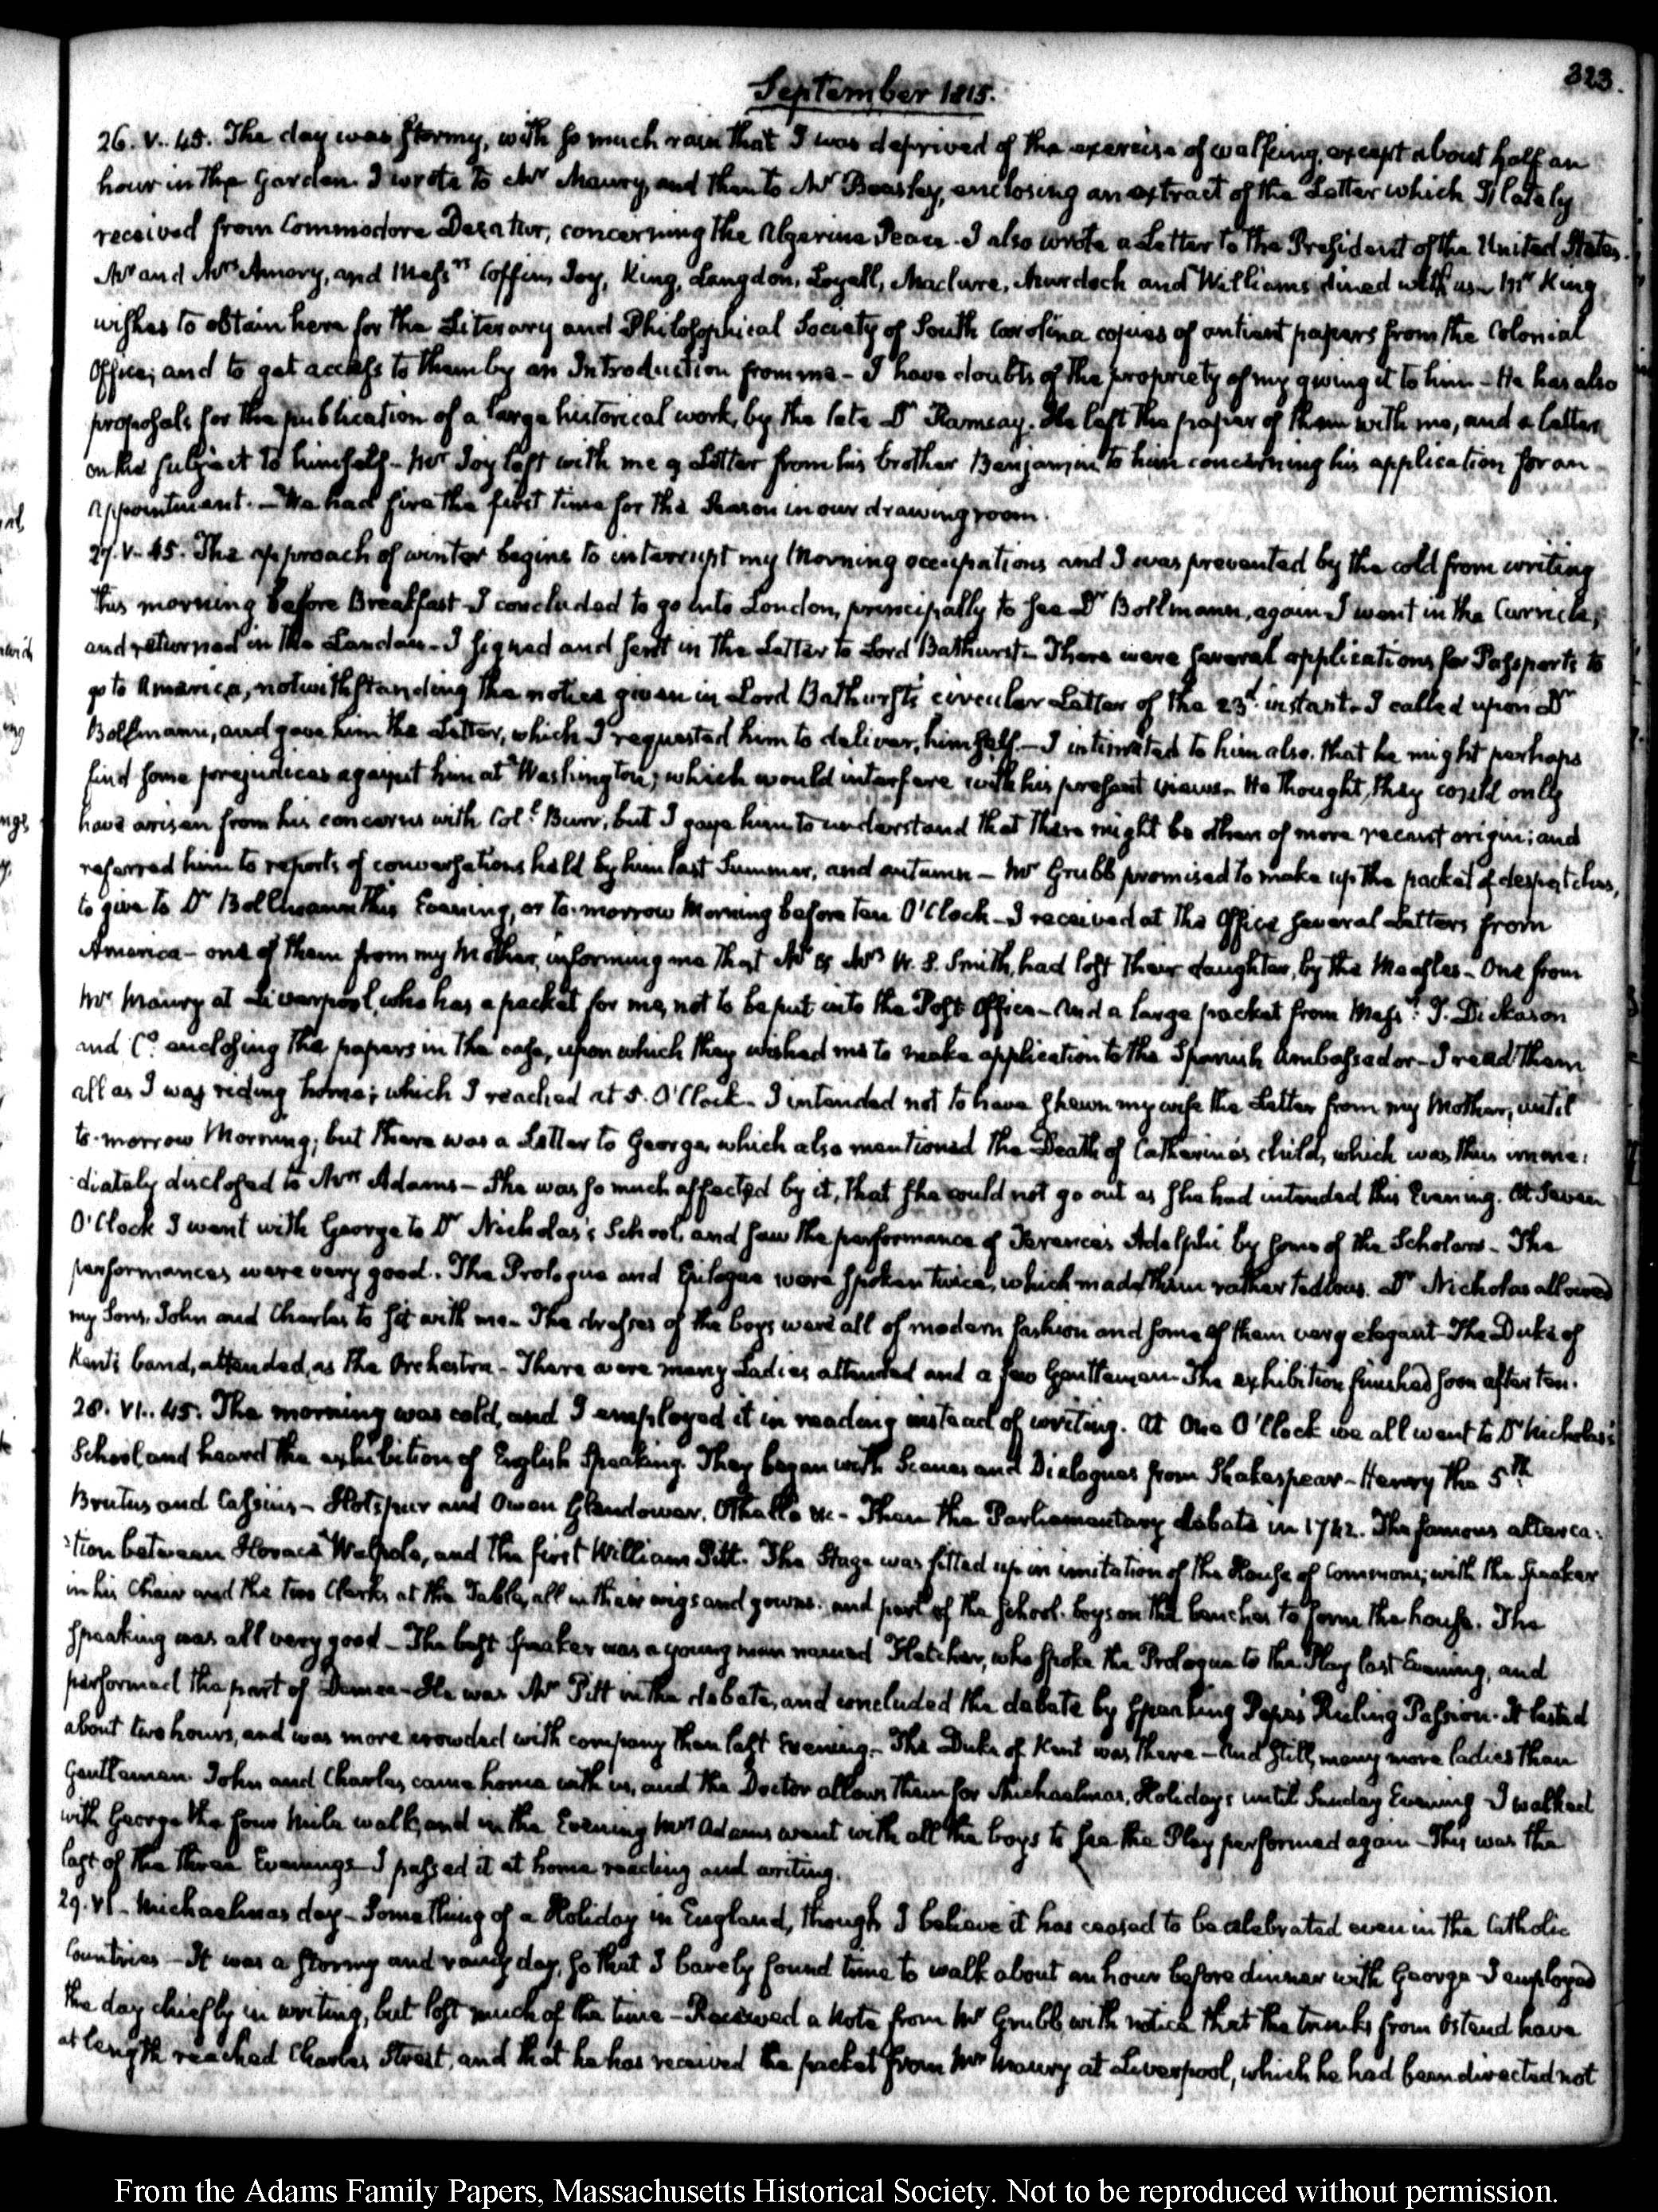 323.
September 1815.
26. V.. 45. The day was stormy, with so much rain that I was deprived of the exercise of walking, except about half an
hour in the Garden. I wrote to Mr Maury, and then to Mr Beasley, enclosing an extract of the Letter which I lately
received from Commodore Decatur, concerning the Algerine Peace. I also wrote a Letter to the President of the United States.
Mr and Mrs Amory, and Messrs Coffin, Joy, King, Langdon, Loyall, Maclure, Murdoch and Williams dined with us. Mr King
wishes to obtain here for the Literary and Philosophical Society of South Carolina copies of antient papers from the Colonial
Office; and to get access to them by an Introduction from me - I have doubts of the propriety of my giving it to him - He has also
proposals for the publication of a large historical work, by the late Dr Ramsay. He left the paper of them with me, and a letter
on the subject to himself - Mr Joy left with me a Letter from his brother Benjamin to him concerning his application for an
Appointment. - We had fire the first time for the Season in our drawing room.
27. V. 45. The approach of winter begins to interrupt my Morning occupations and I was prevented by the cold from writing
this morning before Breakfast - I concluded to go into London, principally to see Dr Bollmann, again - I went in the Curricle,
and returned in the Landau - I signed and sent in the Letter to Lord Bathurst - There were several applications for Passports to
go to America, notwithstanding the notice given in Lord Bathurst's circular Letter of the 23d. instant - I called upon Dr
Bollmann, and gave him the Letter, which I requested him to deliver, himself. - I intimated to him also, that he might perhaps
find some prejudices against him at Washington, which would interfere with his present views - He thought, they could only
have arisen from his concerns with Coll. Burr, but I gave him to understand that there might be others of more recent origin; and
referred him to reports of conversations held by him last Summer, and autumn - Mr Grubb promised to make up the packet of despatches,
to give to Dr Bollmann this Evening, or to-morrow Morning before ten O'Clock - I received at the Office several Letters from
America - one of them from my Mother, informing me that Mr & Mrs W. S. Smith, had lost their daughter, by the Measles - One from
Mr Maury at Liverpool, who has a packet for me, not to be put into the Post Office - And a large packet from Messrs. T. Dickason
and Co. enclosing the papers in the case, upon which they wished me to make application to the Spanish Ambassador - I read them
all as I was riding home; which I reached at 5. O'Clock - I intended not to have shewn my wife the Letter from my Mother, until
to-morrow Morning; but there was a Letter to George, which also mentioned the Death of Catherine's child, which was thus imme:
:diately disclosed to Mrs Adams - She was so much affected by it, that she could not go out as she had intended this Evening. At Seven
O'Clock I went with George to Dr Nicholas's School, and saw the performance of Terence's Adelphi by some of the Scholars - The
performances were very good. The Prologue and Epilogue were spoken twice, which made them rather tedious. Dr Nicholas allowed
my Sons, John and Charles to sit with me - The dresses of the boys were all of modern fashion and some of them very elegant - The Duke of
Kent's band, attended, as the Orchestra - There were many Ladies attended and a few Gentlemen - The exhibition finished soon after ten.
28. VI.. 45. The morning was cold, and I employed it in reading instead of writing. At One O'Clock we all went to Dr Nicholas's
School, and heard the exhibition of English Speaking. They began with Scenes and Dialogues from Shakespear - Henry the 5th.
Brutus and Cassius - Hotspur and Owen Glendower. Othello &c - Then the Parliamentary debate in 1742. The famous alterca:
:tion between Horace Walpole, and the first William Pitt. The Stage was fitted up in imitation of the House of Commons; with the Speaker
in his Chair and the two Clerks at the Table, all in their wigs and gowns; and part of the school-boys on the benches to form the house. The
Speaking was all very good - The best speaker was a young man named Fletcher, who spoke the Prologue to the Play last Evening, and
performed the part of Demea - He was Mr Pitt in the debate, and concluded the debate by speaking Pope's Ruling Passion. It lasted
about two hours, and was more crowded with company than last Evening. - The Duke of Kent was there - And still, many more ladies than
Gentlemen. John and Charles, came home with us, and the Doctor allows them for Michaelmas, Holidays until Sunday Evening - I walked
with George the four mile walk, and in the Evening Mrs Adams went with all the boys to see the Play performed again - This was the
last of the three Evenings - I passed it at home reading and writing.
29. VI - Michaelmas day - Something of a Holiday in England, though I believe it has ceased to be celebrated even in the Catholic
Countries - It was a stormy and rainy day, so that I barely found time to walk about an hour before dinner with George - I employed
the day chiefly in writing, but lost much of the time - Received a Note from Mr Grubb with notice that the trunks from Ostend have
at length reached Charles Street, and that he has received the packet from Mr Maury at Liverpool, which he had been directed not
From the Adams Family Papers, Massachusetts Historical Society. Not to be reproduced without permission.